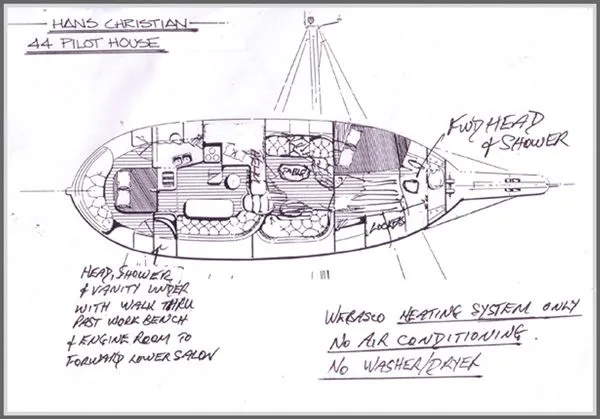 HANS CHRISTIAN
44 PILOT HOUSE
FWD HEAD
& SHOWER
TABLE
LOCKERS
HEAD, SHOWER
& VANITY UNDER
WITH WALK THRU
PAST WORK BENCH
& ENGINE ROOM TO
FORWARD LOWER SALON
WEBASCO HEATING SYSTEM ONLY
NO AIR CONDITIONING.
NO WASHER/DRYER